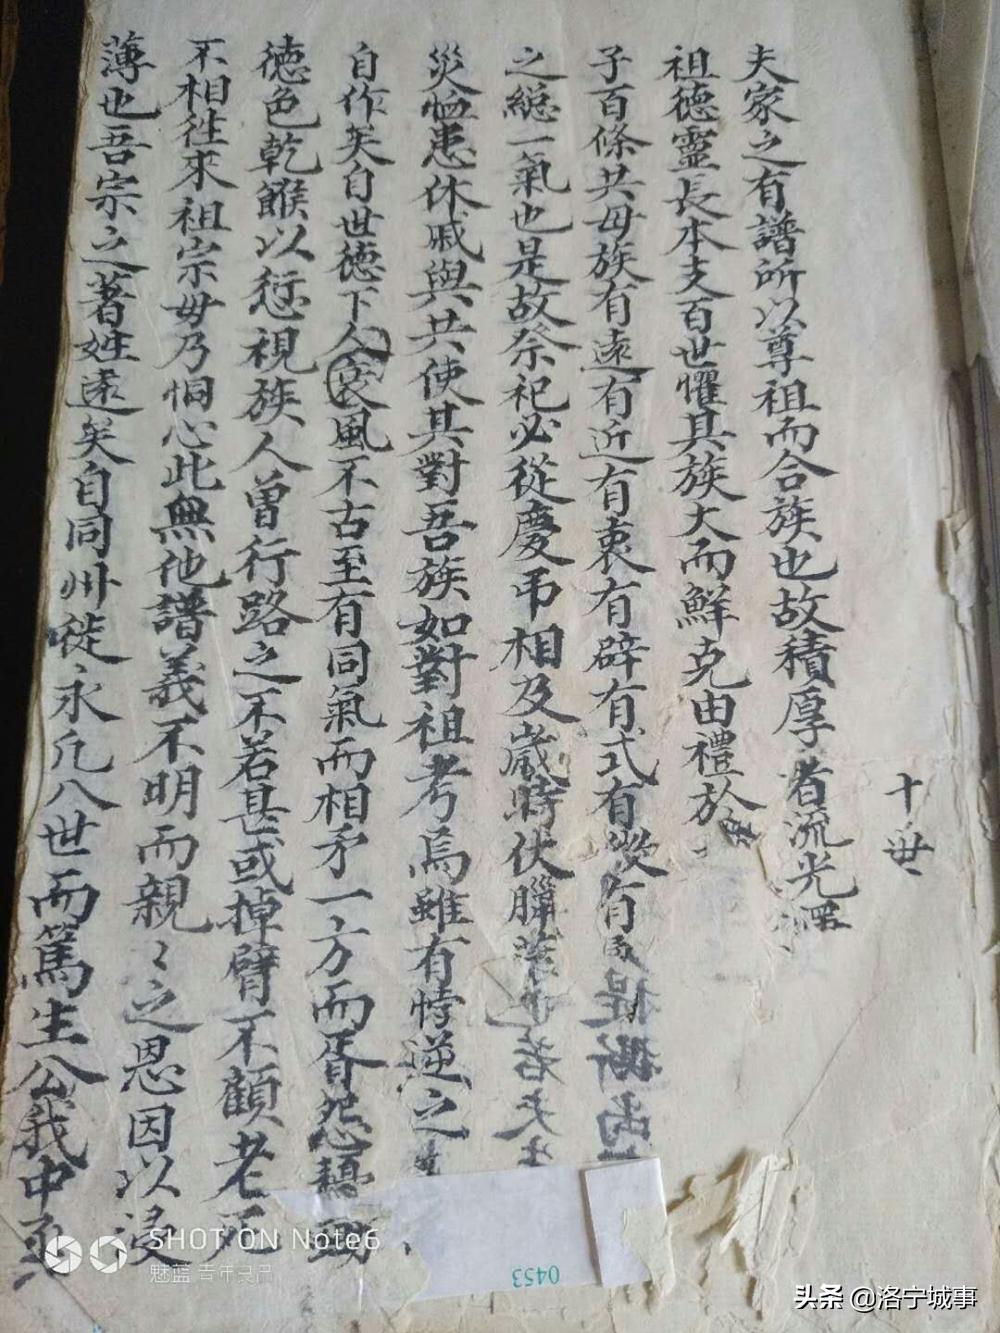 十世
夫家之有譜所以尊祖而合族也故積厚者流光澤
祖德靈長本支百世懼其族大而鮮克由禮於
子百條共毋族有遠有近有衷有辟有式有
之總一氣也是故祭祀必從慶弔相及歲時伏臘
災恤患休戚與共使其對吾族如對祖考焉雖有悖逆之
自作矣自世德下人衰風不古至有同氣而相矛一方而胥怨
德色乾餱以愆視族人曾行路之不若甚或掉臂不顧老死
不相往來祖宗毋乃恫心此無他譜義不明而親〻之恩因以浸
薄也吾宗之著姓遠矣自同州徙永凡八世而篤生公我中丞
0453
SHOT ON Note6
魅蓝 青年良品
头条 @洛宁城事